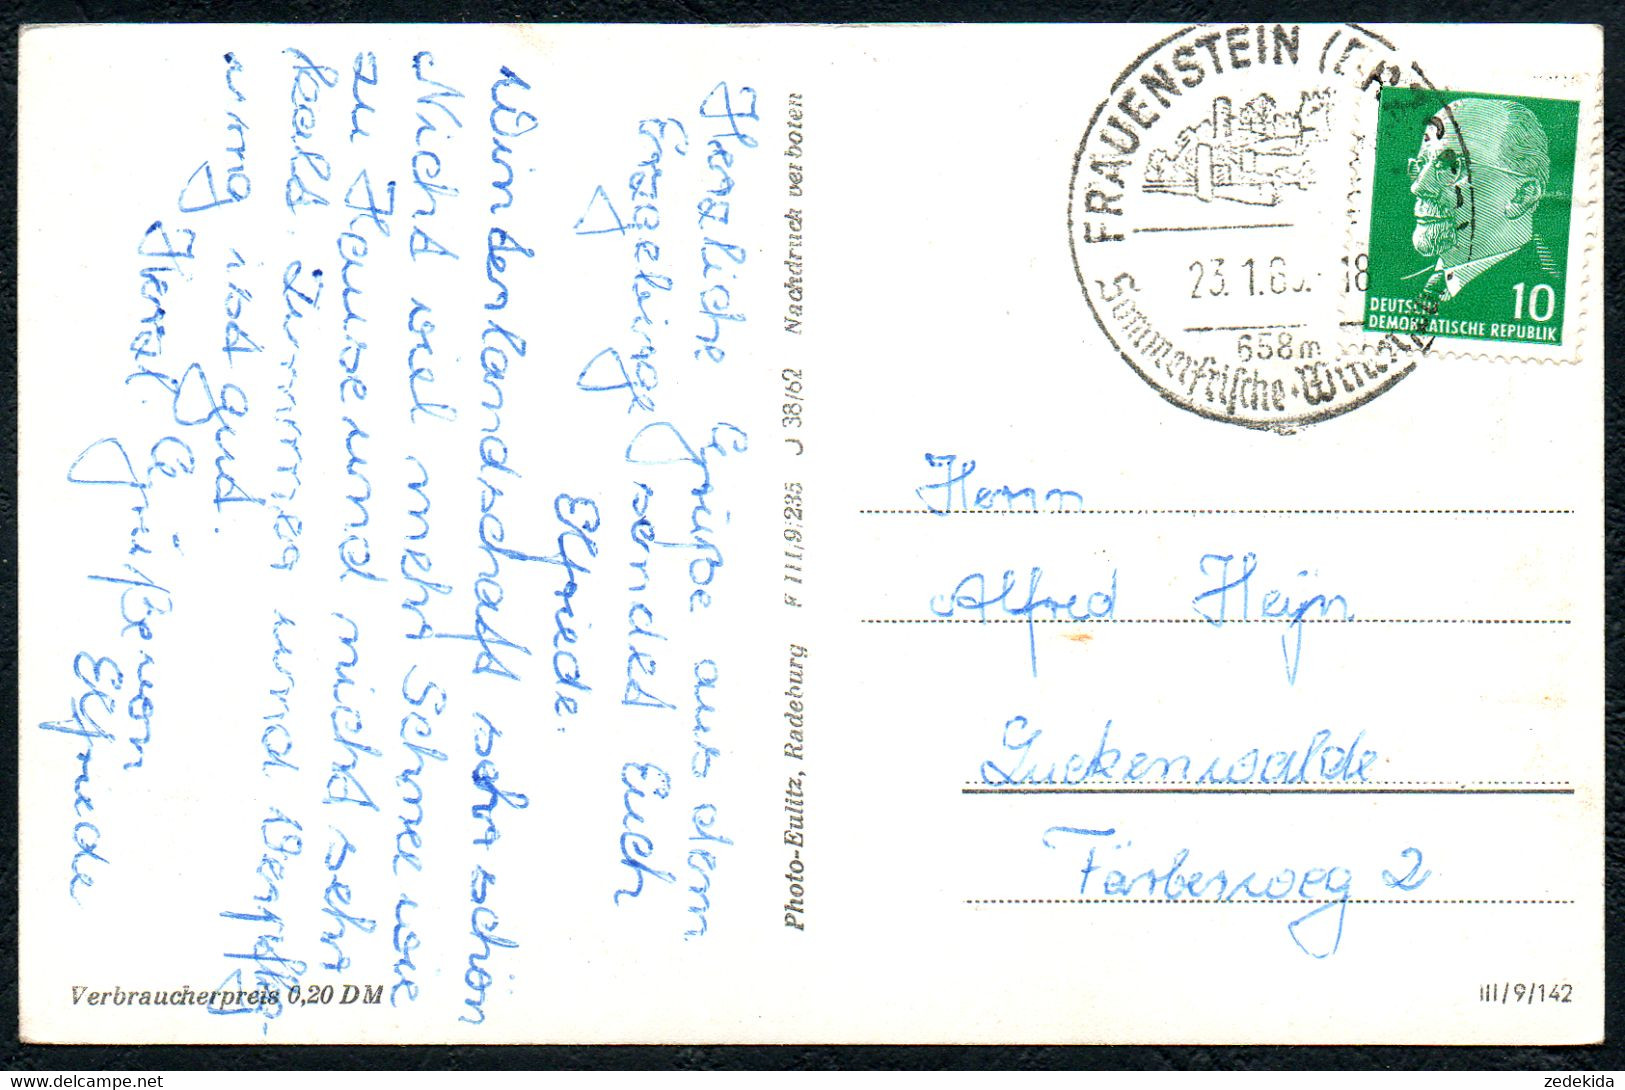 Herzliche Grüße aus dem
Erzgebirge sendet Euch
Elfriede.
Winterlandschaft sehr schön
Nicht viel mehr Schnee wie
zu Hause und nicht sehr
kalt. Zimmer und Verpfle-
gung ist gut.
Herzl.
Grüße von
Elfriede
Verbraucherpreis 0,20 DM
Photo-Eulitz, Radeburg F III/9/235 J 38/62 Nachdruck verboten
FRAUENSTEIN
23.1.6 18
658m
Sommerfrische · Winter
10
DEUTSCHE
DEMOKRATISCHE REPUBLIK
Herrn
Alfred Heyn
Luckenwalde
Färberweg 2
III/9/142
zedekida